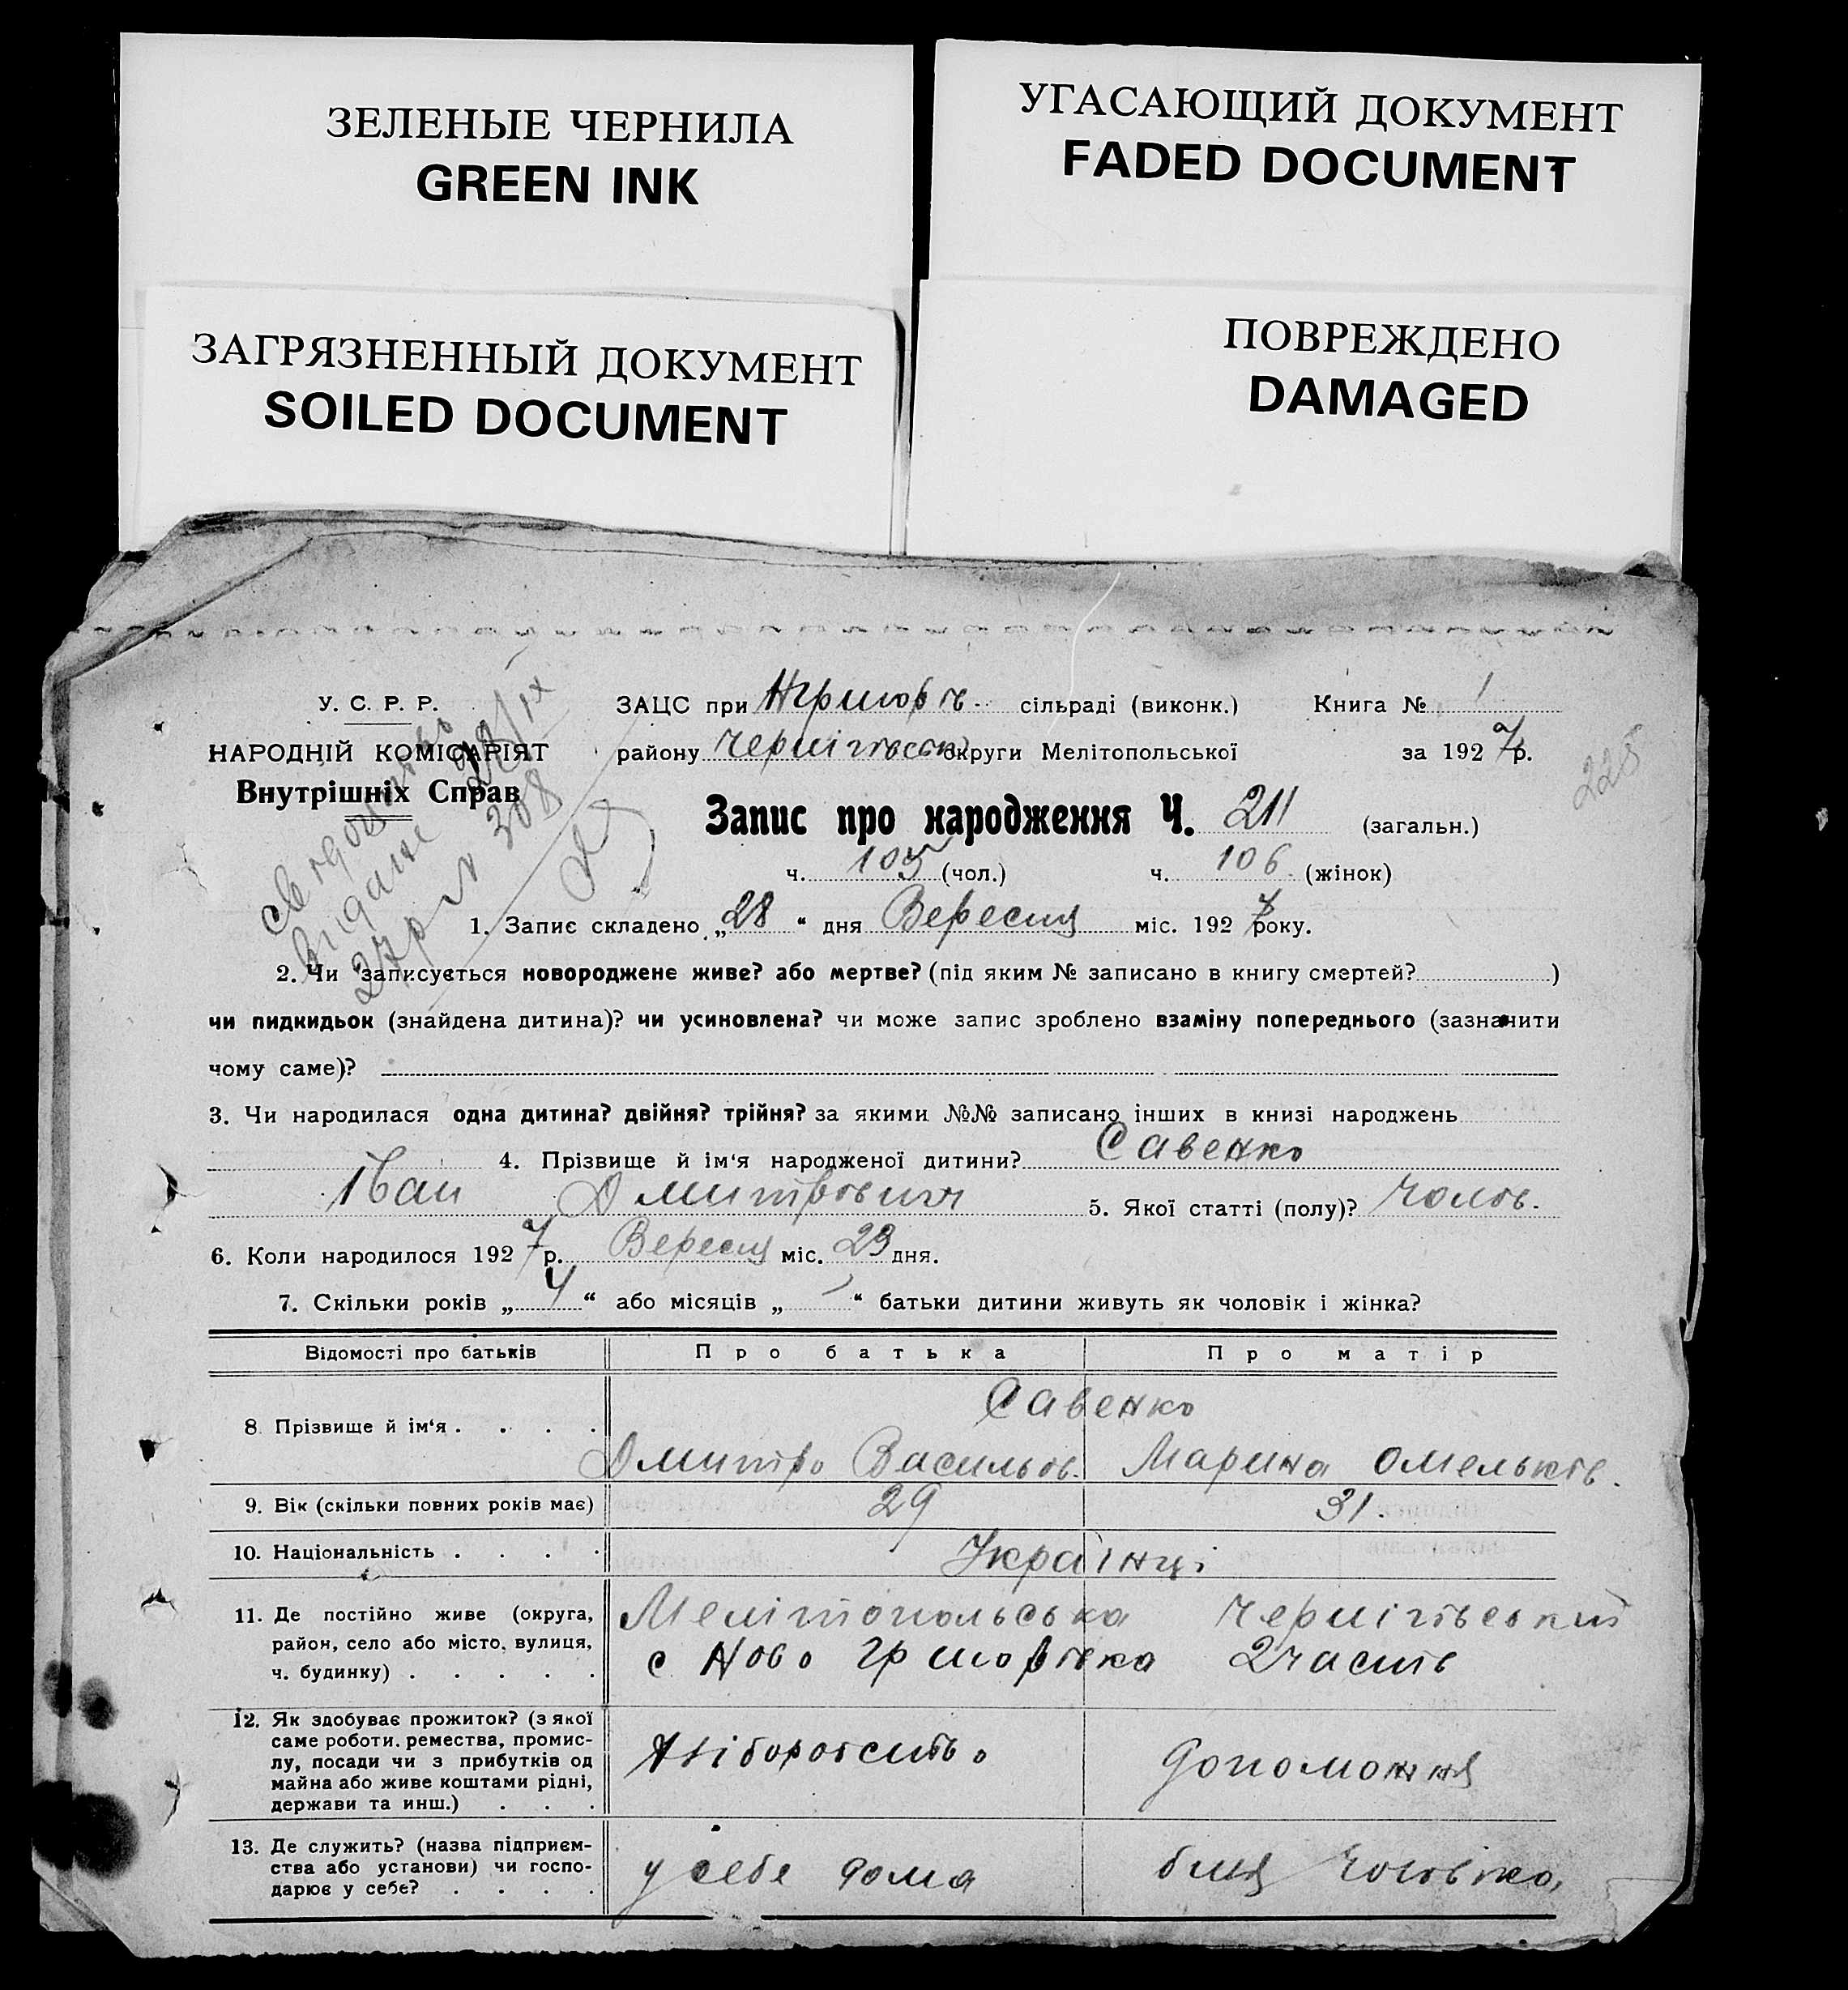 ЗЕЛЕНЫЕ ЧЕРНИЛА
GREEN INK
УГАСАЮЩИЙ ДОКУМЕНТ
FADED DOCUMENT
ЗАГРЯЗНЕННЫЙ ДОКУМЕНТ
SOILED DOCUMENT
ПОВРЕЖДЕНО
DAMAGED
У. С. Р. Р.
НАРОДНІЙ КОМІСАРІЯТ
Внутрішніх Справ
видане 28/IX
27 р № 308
ЗАЦС при сільраді (виконк.) Книга № 1
району Чернігівськ округи Мелітопольської за 1927 р.
225
Запис про народження Ч. 211 (загальн.)
ч. 105 (чол.) ч. 106 (жінок)
1. Запис складено „28“ дня Вересня міс. 1927 року.
2. Чи записується новороджене живе? або мертве? (під яким № записано в книгу смертей? )
чи пидкидьок (знайдена дитина)? чи усиновлена? чи може запис зроблено взаміну попереднього (зазначити
чому саме)?
3. Чи народилася одна дитина? двійня? трійня? за якими №№ записано інших в книзі народжень
4. Прізвище й ім‘я народженої дитини? Савенко
Іван Дмитрович 5. Якої статті (полу)? чолов.
6. Коли народилося 1927 р. Вересня міс. 23 дня.
7. Скільки років „4“ або місяців „-“ батьки дитини живуть як чоловік і жінка?
Відомості про батьків Про батька Про матір
8. Прізвище й ім‘я . . . . Савенко
Дмитро Васильов. Марина Омельків.
9. Вік (скільки повних років має) 29 31.
10. Національність . . . . Українці
11. Де постійно живе (округа, район, село або місто, вулиця, ч. будинку) . . . . . Мелітопольська Чернігівський
с Ново Григорівка 2 часть
12. Як здобуває прожиток? (з якої саме роботи. ремества, промислу, посади чи з прибутків од майна або живе коштами рідні, держави та инш.) . . . Хліборобство допоможня
13. Де служить? (назва підприємства або установи) чи господарює у себе? . . . . у себе дома біля чоловіка,